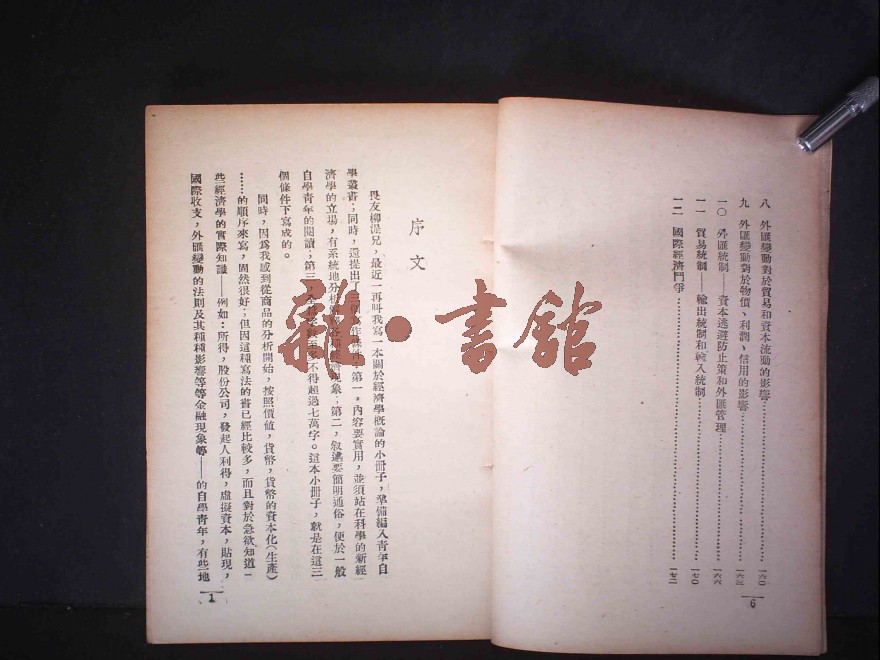 八　外匯變動對於貿易和資本流動的影響…………一六〇
九　外匯變動對於物價、利潤、信用的影響…………一六三
一〇　外匯統制——資本逃避防止策和外匯管理…………一六六
一一　貿易統制——輸出統制和輸入統制…………一七〇
一二　國際經濟鬥爭…………一七二
6
序文
畏友柳湜兄，最近一再叫我寫一本關於經濟學概論的小冊子，準備編入青年自
學叢書；同時，還提出了三個寫作條件：第一，內容要實用，並須站在科學的新經
濟學的立場，有系統地分析現象；第二，敘述要簡明通俗，便於一般
自學青年的閱讀；第三，不得超過七萬字。這本小冊子，就是在這三
個條件下寫成的。
同時，因為我感到從商品的分析開始，按照價值，貨幣，貨幣的資本化（生產）
……的順序來寫，固然很好；但因這種寫法的書已經比較多，而且對於急欲知道一
些經濟學的實際知識——例如：所得，股份公司，發起人利得，虛擬資本，貼現，
國際收支，外匯變動的法則及其種種影響等等金融現象等——的自學青年，有些地
1
雜・書館